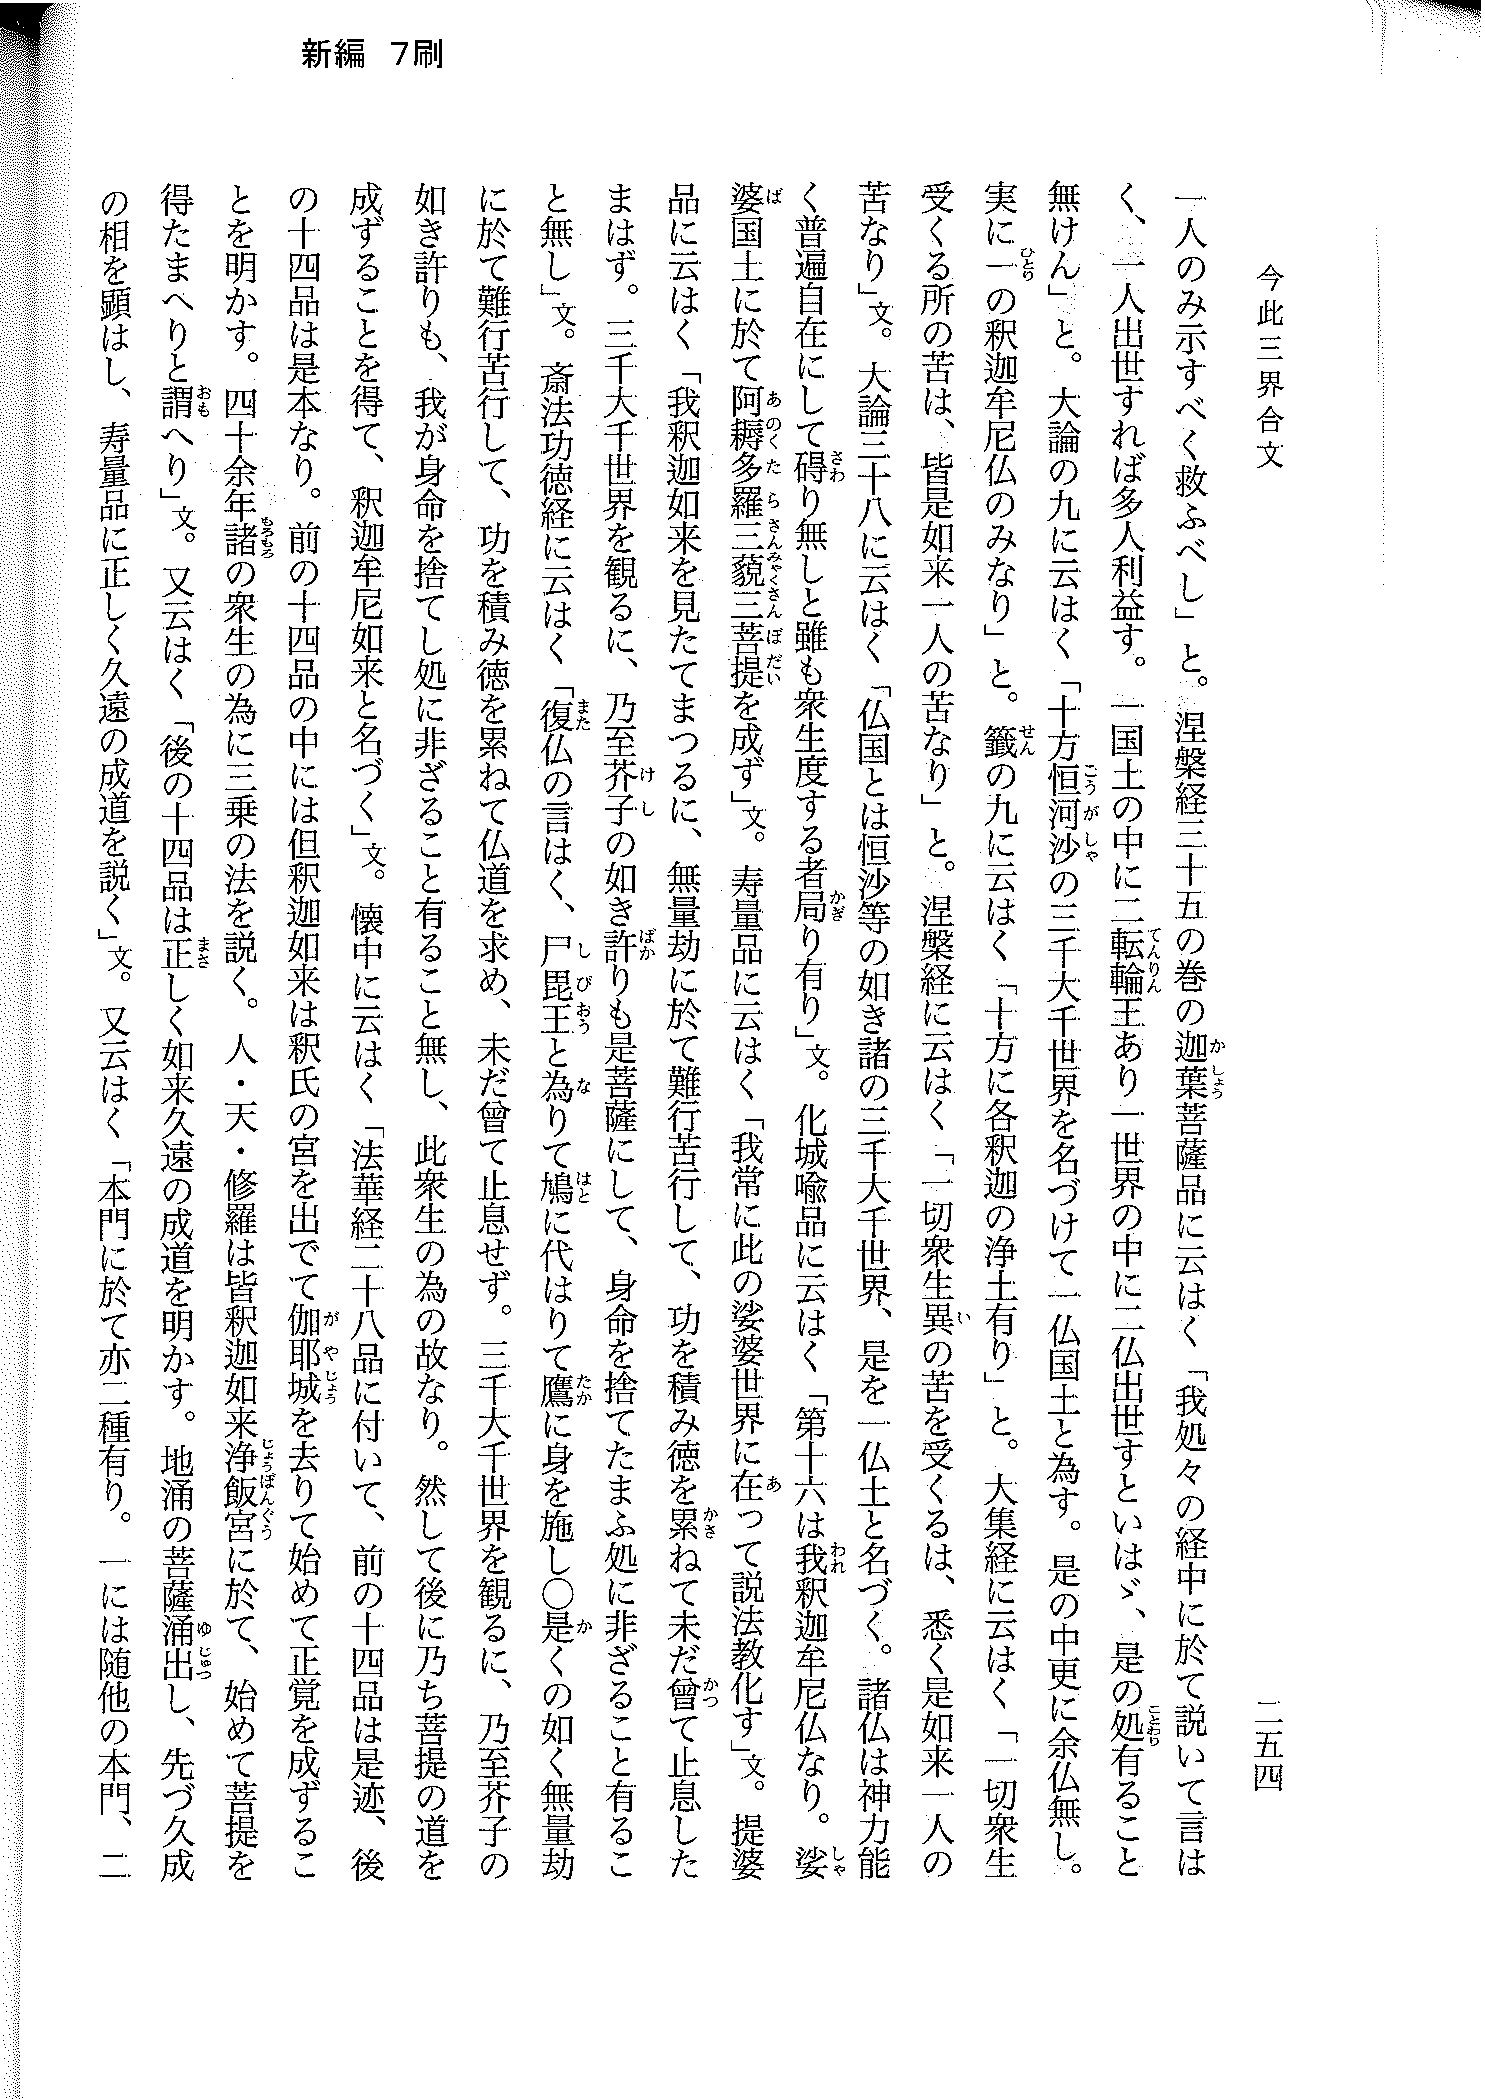 新編 7刷
今此三界合文
二五四
一人のみ示すべく救ふべし」と。涅槃経三十五の巻の迦葉菩薩品に云はく「我処々の経中に於て説いて言は
く、一人出世すれば多人利益す。一国土の中に二転輪王あり一世界の中に二仏出世すといはゞ、是の処有ること
無けん」と。大論の九に云はく「十方恒河沙の三千大千世界を名づけて一仏国土と為す。是の中更に余仏無し。
実に一の釈迦牟尼仏のみなり」と。籤の九に云はく「十方に各釈迦の浄土有り」と。大集経に云はく「一切衆生
受くる所の苦は、皆是如来一人の苦なり」と。涅槃経に云はく「一切衆生異の苦を受くるは、悉く是如来一人の
苦なり」文。大論三十八に云はく「仏国とは恒沙等の如き諸の三千大千世界、是を一仏土と名づく。諸仏は神力能
く普遍自在にして碍り無しと雖も衆生度する者局り有り」文。化城喩品に云はく「第十六は我釈迦牟尼仏なり。娑
婆国土に於て阿耨多羅三藐三菩提を成ず」文。寿量品に云はく「我常に此の娑婆世界に在って説法教化す」文。提婆
品に云はく「我釈迦如来を見たてまつるに、無量劫に於て難行苦行して、功を積み徳を累ねて未だ曾て止息した
まはず。三千大千世界を観るに、乃至芥子の如き許りも是菩薩にして、身命を捨てたまふ処に非ざること有るこ
と無し」文。斎法功徳経に云はく「復仏の言はく、尸毘王と為りて鳩に代はりて鷹に身を施し○是くの如く無量劫
に於て難行苦行して、功を積み徳を累ねて仏道を求め、未だ曾て止息せず。三千大千世界を観るに、乃至芥子の
如き許りも、我が身命を捨てし処に非ざること有ること無し、此衆生の為の故なり。然して後に乃ち菩提の道を
成ずることを得て、釈迦牟尼如来と名づく」文。懐中に云はく「法華経二十八品に付いて、前の十四品は是迹、後
の十四品は是本なり。前の十四品の中には但釈迦如来は釈氏の宮を出でて伽耶城を去りて始めて正覚を成ずるこ
とを明かす。四十余年諸の衆生の為に三乗の法を説く。人・天・修羅は皆釈迦如来浄飯宮に於て、始めて菩提を
得たまへりと謂へり」文。又云はく「後の十四品は正しく如来久遠の成道を明かす。地涌の菩薩涌出し、先づ久成
の相を顕はし、寿量品に正しく久遠の成道を説く」文。又云はく「本門に於て亦二種有り。一には随他の本門、二